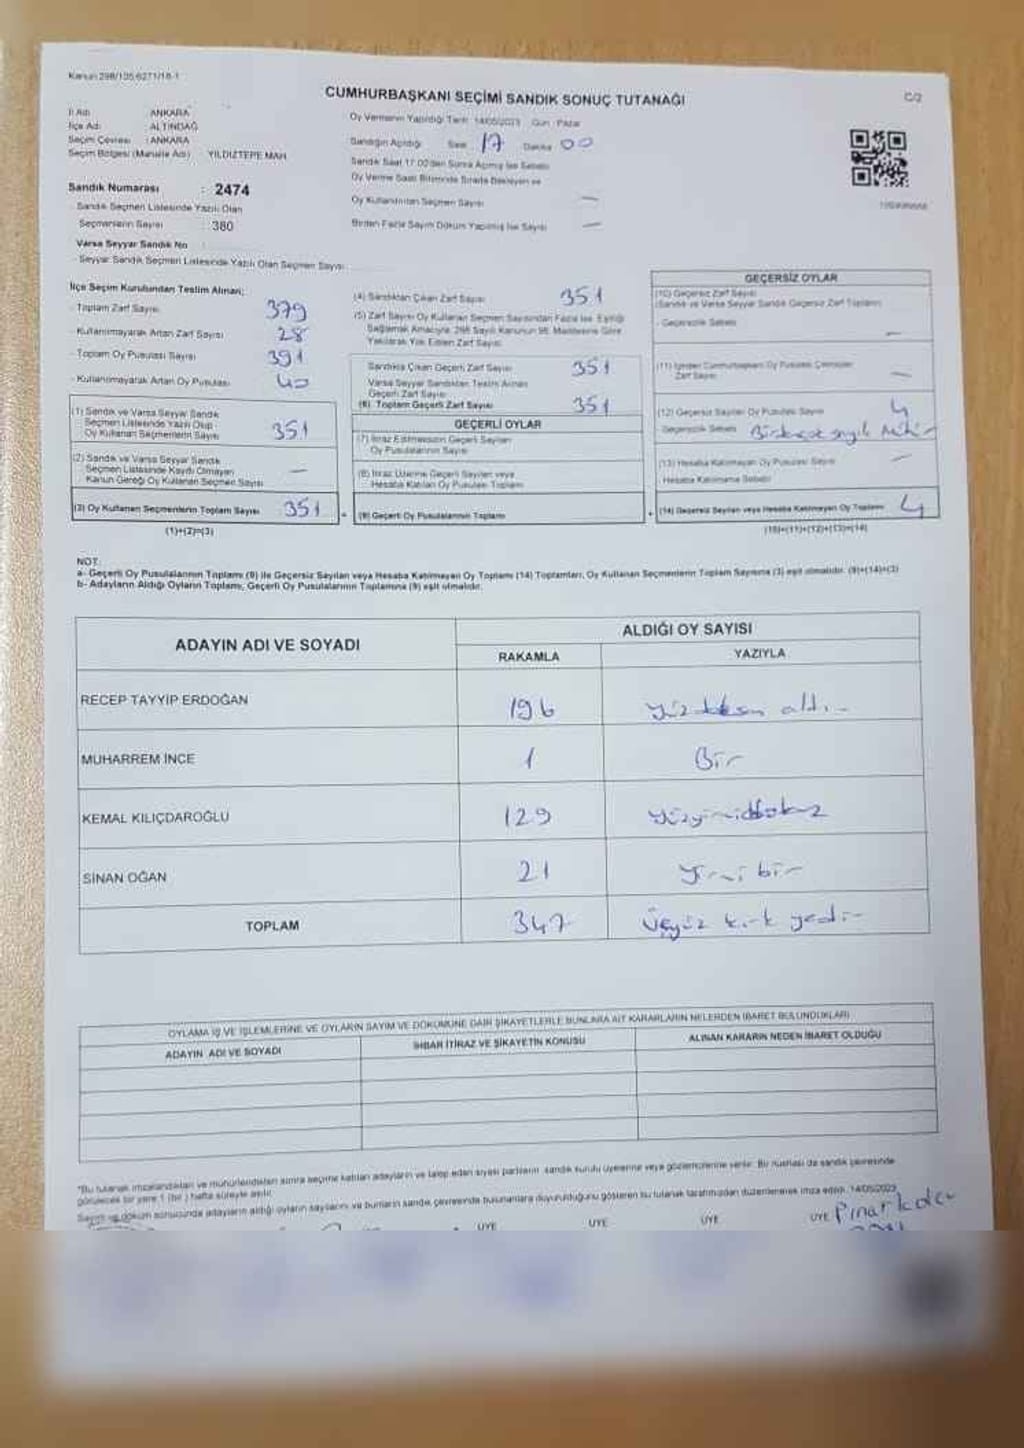 Kanun 298/135 6271/18-1
CUMHURBAŞKANI SEÇİMİ SANDIK SONUÇ TUTANAĞI
C/2
İl Adı : ANKARA
İlçe Adı : ALTINDAĞ
Seçim Çevresi : ANKARA
Seçim Bölgesi (Mahalle Adı) YILDIZTEPE MAH
Sandık Numarası : 2474
Sandık Seçmen Listesinde Yazılı Olan
Seçmenlerin Sayısı : 380
Varsa Seyyar Sandık No
- Seyyar Sandık Seçmen Listesinde Yazılı Olan Seçmen Sayısı
Oy Vermenin Yapıldığı Tarih 14/05/2023 Gün : Pazar
Sandığın Açıldığı Saat 17 Dakika 00
Sandık Saat 17.00'den Sonra Açılmış İse Sebebi
Oy Verme Saati Bitiminde Sırada Bekleyen ve
Oy Kullandırılan Seçmen Sayısı —
Birden Fazla Sayım Döküm Yapılmış İse Sayısı —
İlçe Seçim Kurulundan Teslim Alınan;
- Toplam Zarf Sayısı 379
- Kullanılmayarak Artan Zarf Sayısı 28
- Toplam Oy Pusulası Sayısı 391
- Kullanılmayarak Artan Oy Pusulası 40
(1) Sandık ve Varsa Seyyar Sandık
Seçmen Listesinde Yazılı Olup
Oy Kullanan Seçmenlerin Sayısı 351
(2) Sandık ve Varsa Seyyar Sandık
Seçmen Listesinde Kaydı Olmayan
Kanun Gereği Oy Kullanan Seçmen Sayısı —
(3) Oy Kullanan Seçmenlerin Toplam Sayısı 351
(1)+(2)=(3)
(4) Sandıktan Çıkan Zarf Sayısı 351
(5) Zarf Sayısı Oy Kullanan Seçmen Sayısından Fazla İse, Eşitliği
Sağlamak Amacıyla, 298 Sayılı Kanunun 98. Maddesine Göre
Yakılarak Yok Edilen Zarf Sayısı
Sandıkta Çıkan Geçerli Zarf Sayısı 351
Varsa Seyyar Sandıktan Teslim Alınan
Geçerli Zarf Sayısı
(6) Toplam Geçerli Zarf Sayısı 351
GEÇERLİ OYLAR
(7) İtiraz Edilmeksizin Geçerli Sayılan
Oy Pusulalarının Sayısı
(8) İtiraz Üzerine Geçerli Sayılan veya
Hesaba Katılan Oy Pusulası Toplamı
(9) Geçerli Oy Pusulalarının Toplamı
GEÇERSİZ OYLAR
(10) Geçersiz Zarf Sayısı
(Sandık ve Varsa Seyyar Sandık Geçersiz Zarf Toplamı)
- Geçersizlik Sebebi —
Zarf Sayısı —
(12) Geçersiz Sayılan Oy Pusulası Sayısı 4
Geçersizlik Sebebi
(13) Hesaba Katılmayan Oy Pusulası Sayısı —
- Hesaba Katılmama Sebebi
(14) Geçersiz Sayılan veya Hesaba Katılmayan Oy Toplamı 4
(10)+(11)+(12)+(13)=(14)
NOT:
a- Geçerli Oy Pusulalarının Toplamı (9) ile Geçersiz Sayılan veya Hesaba Katılmayan Oy Toplamı (14) Toplamları, Oy Kullanan Seçmenlerin Toplam Sayısına (3) eşit olmalıdır. (9)+(14)=(3)
b- Adayların Aldığı Oyların Toplamı, Geçerli Oy Pusulalarının Toplamına (9) eşit olmalıdır.
ADAYIN ADI VE SOYADI ALDIĞI OY SAYISI
RAKAMLA YAZIYLA
RECEP TAYYİP ERDOĞAN 196 yüz doksan altı
MUHARREM İNCE 1 Bir
KEMAL KILIÇDAROĞLU 129 yüzyirmidokuz
SİNAN OĞAN 21 yirmi bir
TOPLAM 347 üçyüz kırk yedi
OYLAMA İŞ VE İŞLEMLERİNE VE OYLARIN SAYIM VE DÖKÜMÜNE DAİR ŞİKAYETLERLE BUNLARA AİT KARARLARIN NELERDEN İBARET BULUNDUKLARI
ADAYIN ADI VE SOYADI İHBAR İTİRAZ VE ŞİKAYETİN KONUSU ALINAN KARARIN NEDEN İBARET OLDUĞU
*Bu tutanak imzalandıktan ve mühürlendikten sonra seçime katılan adayların ve talep eden siyasi partilerin sandık kurulu üyelerine veya gözlemcilerine verilir. Bir nüshası da sandık çevresinde
görülecek bir yere 1 (bir) hafta süreyle asılır.
Sayım ve döküm sonucunda adayların aldığı oyların sayılarını ve bunların sandık çevresinde bulunanlara duyurulduğunu gösteren bu tutanak tarafımızdan düzenlenerek imza edildi. 14/05/2023
ÜYE ÜYE ÜYE ÜYE Pınar